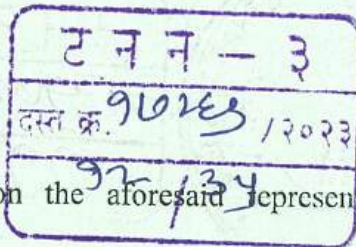 ट न न - ३
दस्त क्र. /२०२३
१२ / ३५
on the aforesaid represen